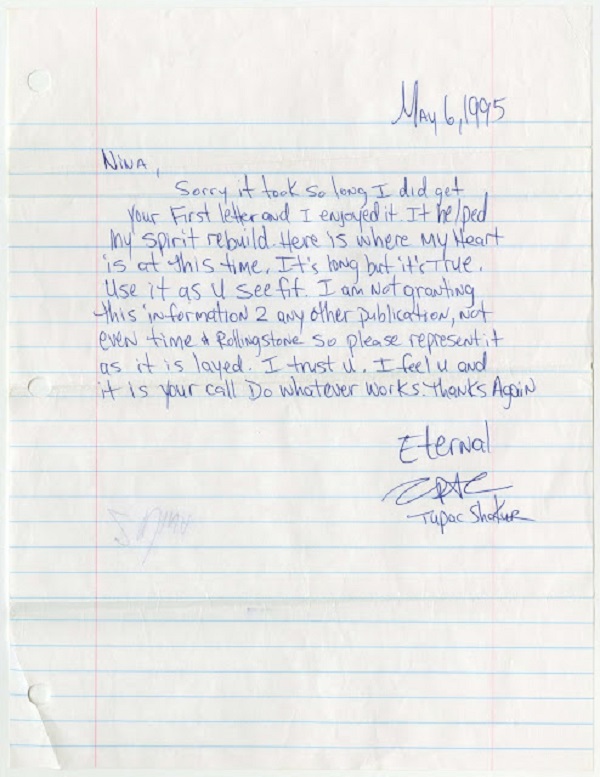 May 6, 1995
Nina,
Sorry it took so long I did get
your First letter and I enjoyed it. It helped
my spirit rebuild. Here is where my Heart
is at this time. It's long but it's True.
Use it as U see fit. I am Not granting
this information 2 any other publication, not
even time & Rollingstone so please represent it
as it is layed. I trust U. I feel U and
it is your call Do whatever works. Thanks Again
Eternal
Tupac Shakur